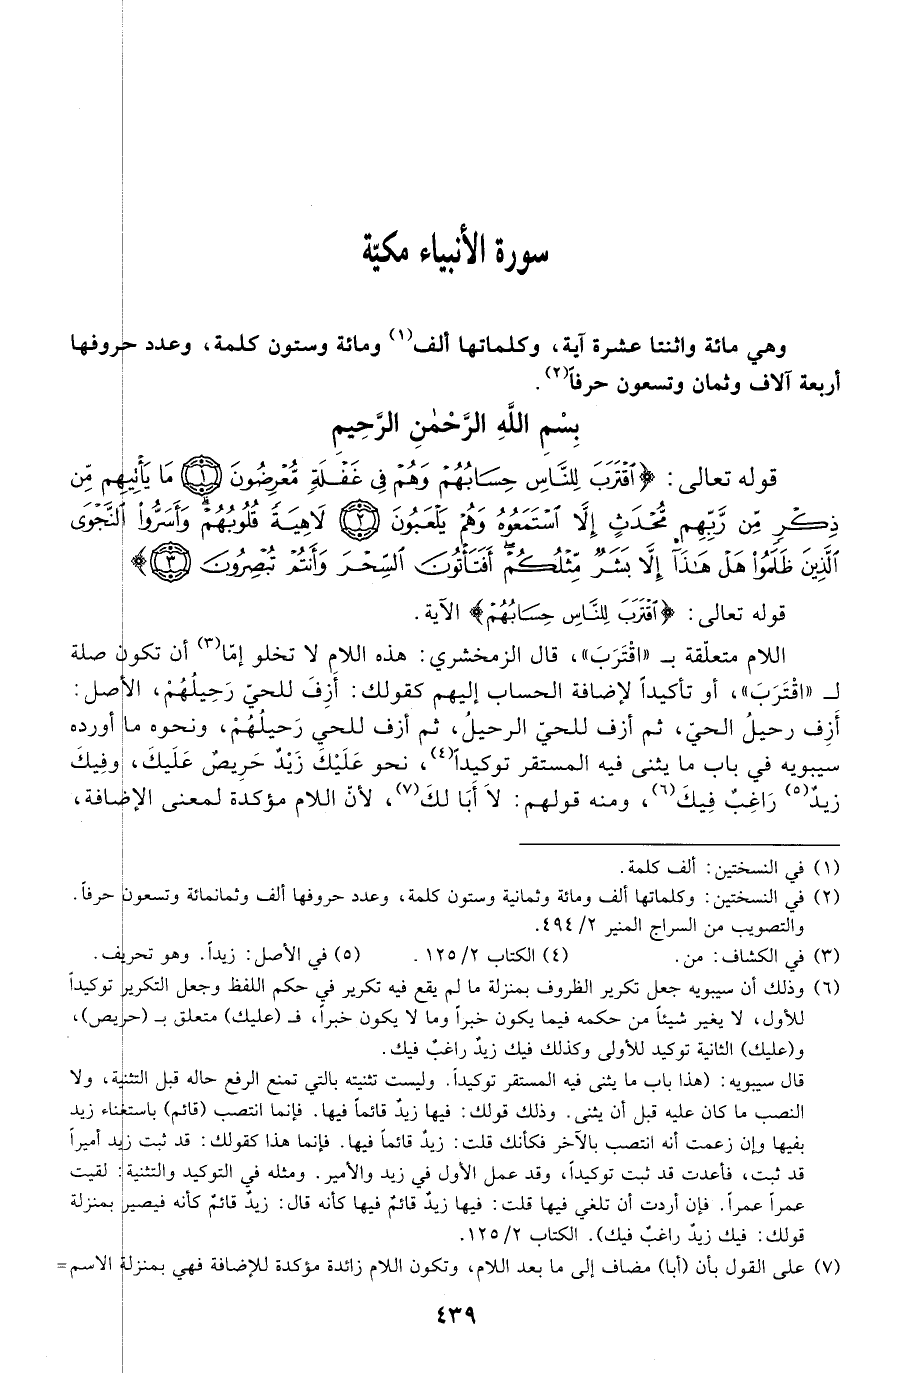 سورة الأنبياء مكيّة
وهي مائة واثنتا عشرة آية، وكلماتها ألف(١) ومائة وستون كلمة، وعدد حروفها
أربعة آلاف وثمان وتسعون حرفاً(٢).
بِسْمِ اللَّهِ الرَّحْمٰنِ الرَّحِيمِ
قوله تعالى: ﴿ٱقْتَرَبَ لِلنَّاسِ حِسَابُهُمْ وَهُمْ فِى غَفْلَةٍ مُّعْرِضُونَ ﴿١﴾ مَا يَأْتِيهِم مِّن
ذِكْرٍ مِّن رَّبِّهِم مُّحْدَثٍ إِلَّا ٱسْتَمَعُوهُ وَهُمْ يَلْعَبُونَ ﴿٢﴾ لَاهِيَةً قُلُوبُهُمْ وَأَسَرُّوا۟ ٱلنَّجْوَى
ٱلَّذِينَ ظَلَمُوا۟ هَلْ هَـٰذَآ إِلَّا بَشَرٌ مِّثْلُكُمْ أَفَتَأْتُونَ ٱلسِّحْرَ وَأَنتُمْ تُبْصِرُونَ ﴿٣﴾﴾
قوله تعالى: ﴿ٱقْتَرَبَ لِلنَّاسِ حِسَابُهُمْ﴾ الآية.
اللام متعلّقة بـ «اقْتَرَبَ»، قال الزمخشري: هذه اللام لا تخلو إمّا(٣) أن تكون صلة
لـ «اقْتَرَبَ»، أو تأكيداً لإضافة الحساب إليهم كقولك: أَزِفَ للحيّ رَحِيلُهُمْ، الأصل:
أَزِف رحيلُ الحيّ، ثم أزف للحيّ الرحيلُ، ثم أزف للحي رَحيلُهُم، ونحوه ما أورده
سيبويه في باب ما يثنى فيه المستقر توكيداً(٤)، نحو عَلَيْكَ زَيْدٌ حَرِيصٌ عَلَيكَ، وفِيكَ
زيدٌ(٥) رَاغِبٌ فِيكَ(٦)، ومنه قولهم: لاَ أَبَا لكَ(٧)، لأنّ اللام مؤكدة لمعنى الإضافة،
(١) في النسختين: ألف كلمة.
(٢) في النسختين: وكلماتها ألف ومائة وثمانية وستون كلمة، وعدد حروفها ألف وثمانمائة وتسعون حرفاً.
والتصويب من السراج المنير ٢/ ٤٩٤.
(٣) في الكشاف: من. (٤) الكتاب ٢/ ١٢٥. (٥) في الأصل: زيداً. وهو تحريف.
(٦) وذلك أن سيبويه جعل تكرير الظروف بمنزلة ما لم يقع فيه تكرير في حكم اللفظ وجعل التكرير توكيداً
للأول، لا يغير شيئاً من حكمه فيما يكون خبراً وما لا يكون خبراً، فـ (عليك) متعلق بـ (حريص)،
و(عليك) الثانية توكيد للأولى وكذلك فيك زيدٌ راغبٌ فيك.
قال سيبويه: (هذا باب ما يثنى فيه المستقر توكيداً. وليست تثنيته بالتي تمنع الرفع حاله قبل التثنية، ولا
النصب ما كان عليه قبل أن يثنى. وذلك قولك: فيها زيدٌ قائماً فيها. فإنما انتصب (قائم) باستغناء زيد
بفيها وإن زعمت أنه انتصب بالآخر فكأنك قلت: زيدٌ قائماً فيها. فإنما هذا كقولك: قد ثبت زيد أميراً
قد ثبت، فأعدت قد ثبت توكيداً، وقد عمل الأول في زيد والأمير. ومثله في التوكيد والتثنية: لقيت
عمراً عمراً. فإن أردت أن تلغي فيها قلت: فيها زيدٌ قائمٌ فيها كأنه قال: زيدٌ قائمٌ كأنه فيصير بمنزلة
قولك: فيك زيدٌ راغبٌ فيك). الكتاب ٢/ ١٢٥.
(٧) على القول بأن (أبا) مضاف إلى ما بعد اللام، وتكون اللام زائدة مؤكدة للإضافة فهي بمنزلة الاسم =
٤٣٩